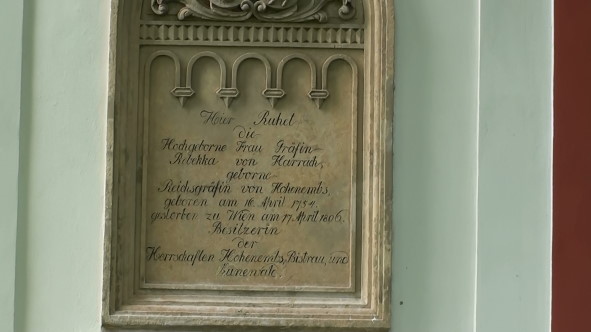 Hier Ruhet
die
Hochgeborne Frau Gräfin
Rebekka von Harrach,
geborne
Reichsgräfin von Hohenembs,
geboren am 16. April 1754.
gestorben zu Wien am 17. April 1806.
Besitzerin
der
Herrschaften Hohenembs, Bistrau, und